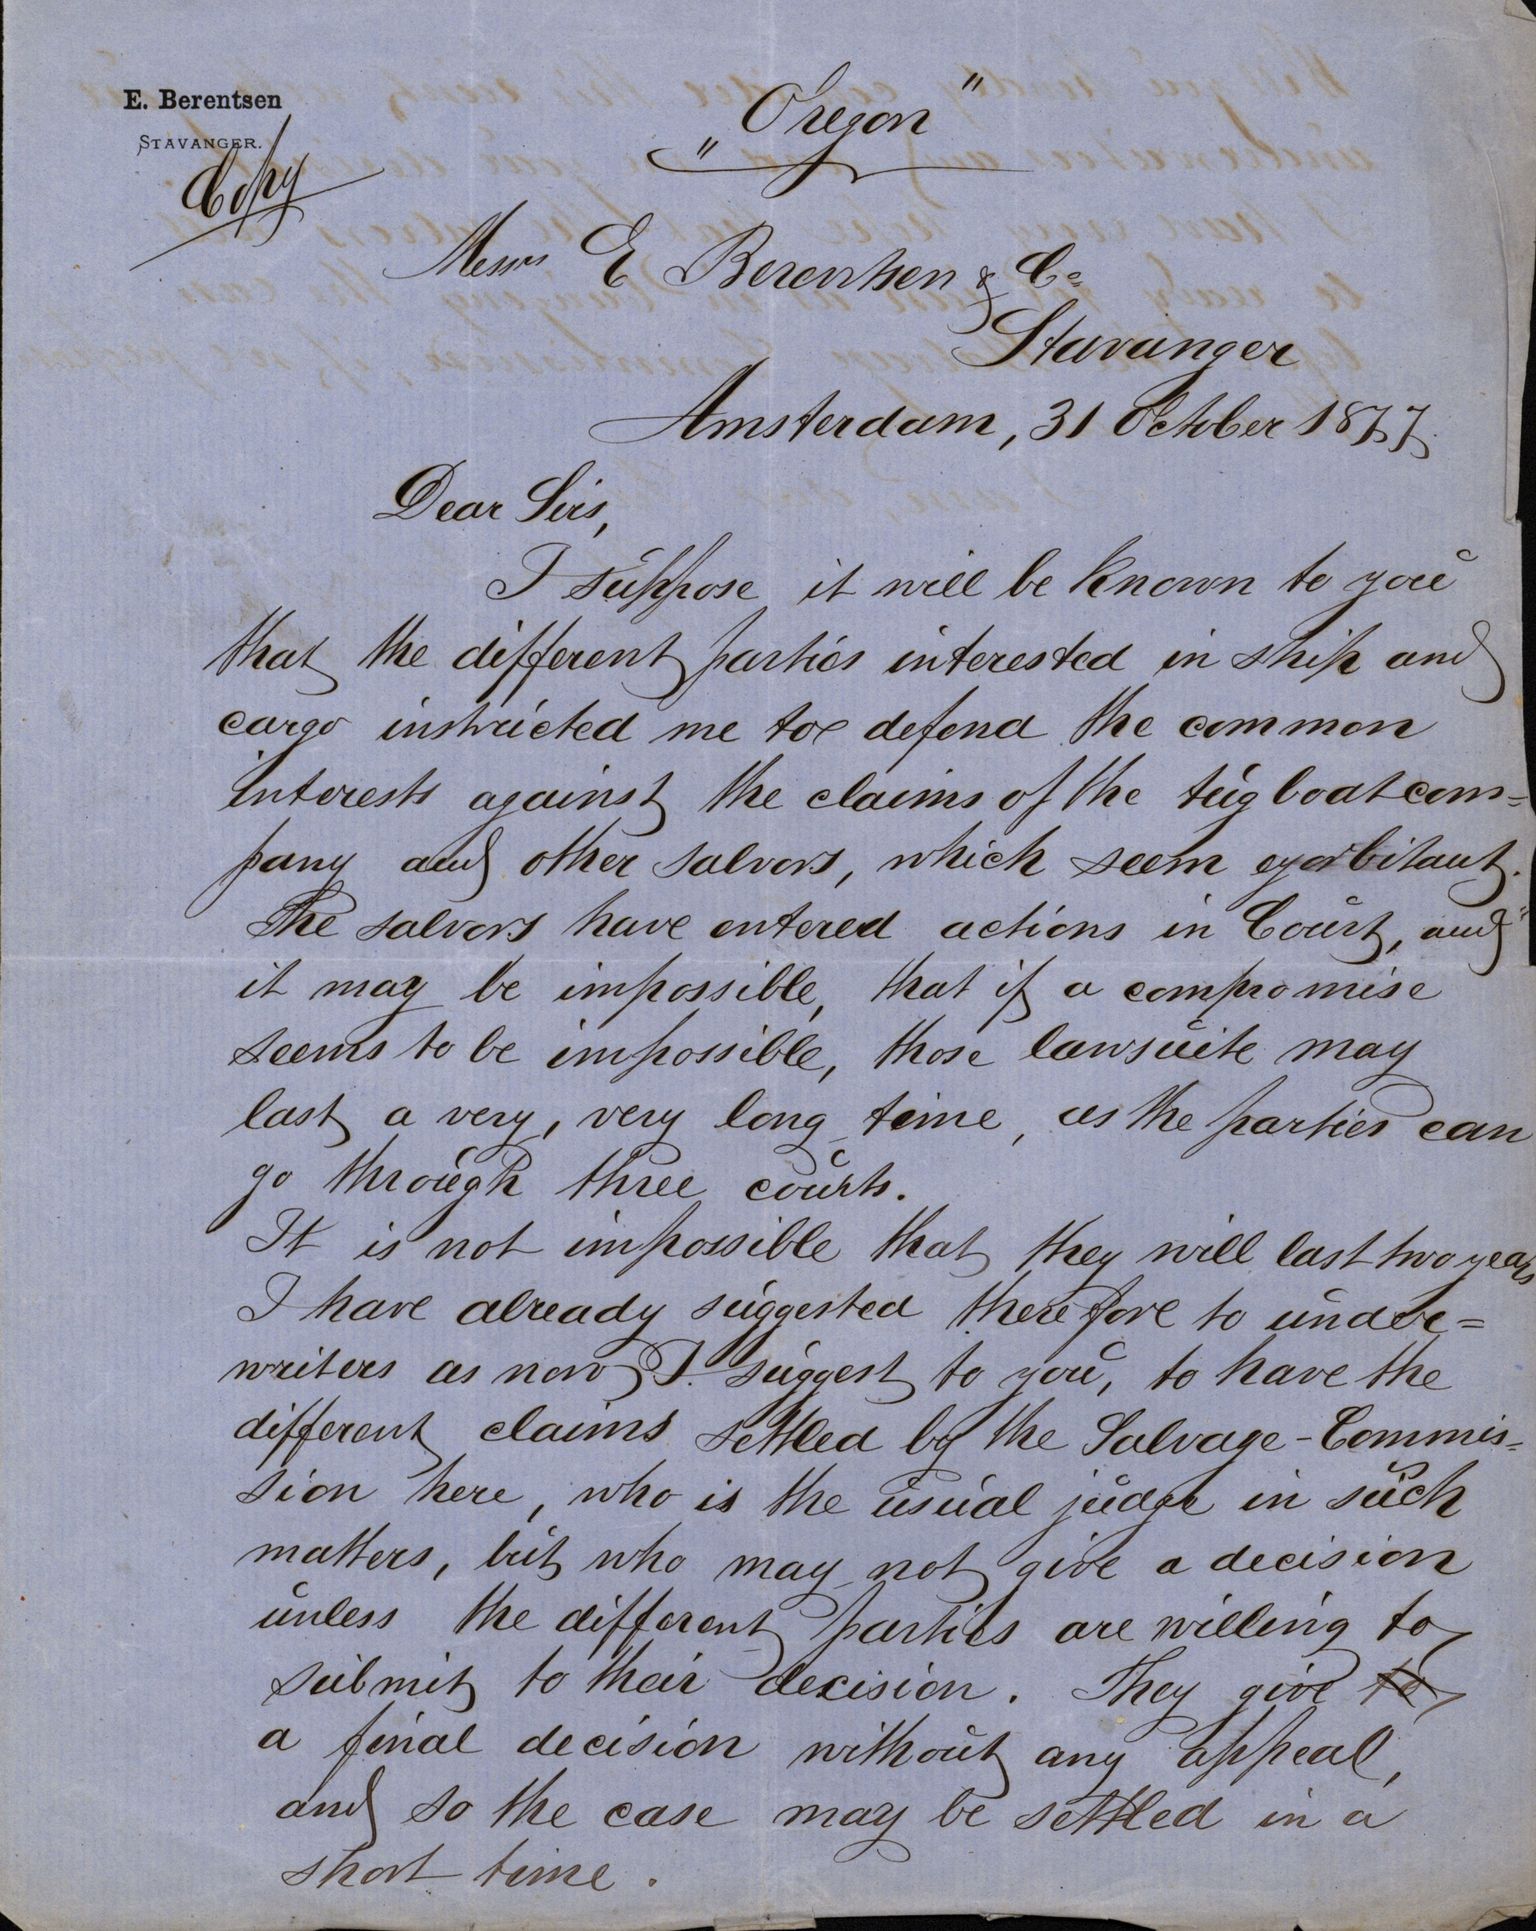 E. Berentsen
STAVANGER.
Copy
„Oregon"
Messrs E Berentsen & Co
Stavanger
Amsterdam, 31 October 1877.
Dear Sirs,
I suppose it will be known to you
that the different parties interested in ship and
cargo instructed me to defend the common
interests against the claims of the tugboatcom=
pany and other salvors, which seem exorbitant.
The salvors have entered actions in Court, and
it may be impossible, that if a compromise
seems to be impossible, those lawsuite may
last a very, very long time, as the parties can
go through three courts.
It is not impossible that they will last two years
I have already suggested therefore to under=
writers as now I suggest to you, to have the
different claims settled by the Salvage-Commis=
sion here, who is the usual judge in such
matters, but who may not give a decision
unless the different parties are willing to
submit to their decision. They give to
a final decision without any appeal,
and so the case may be settled in a
short time.